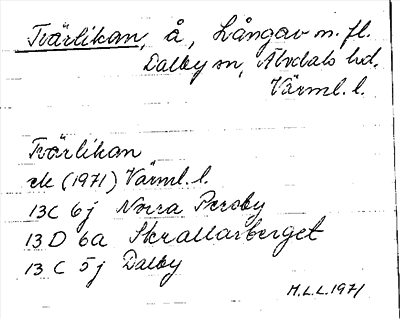 Tvärlikan, å, Långav m. fl.
Dalby sn, Älvdals hd,
Värml. l.
Tvärlikan
ek (1971) Värml. l.
13C 6j Norra Persby
13D 6a Skrallarberget
13 C 5j Dalby
M.L.L. 1971